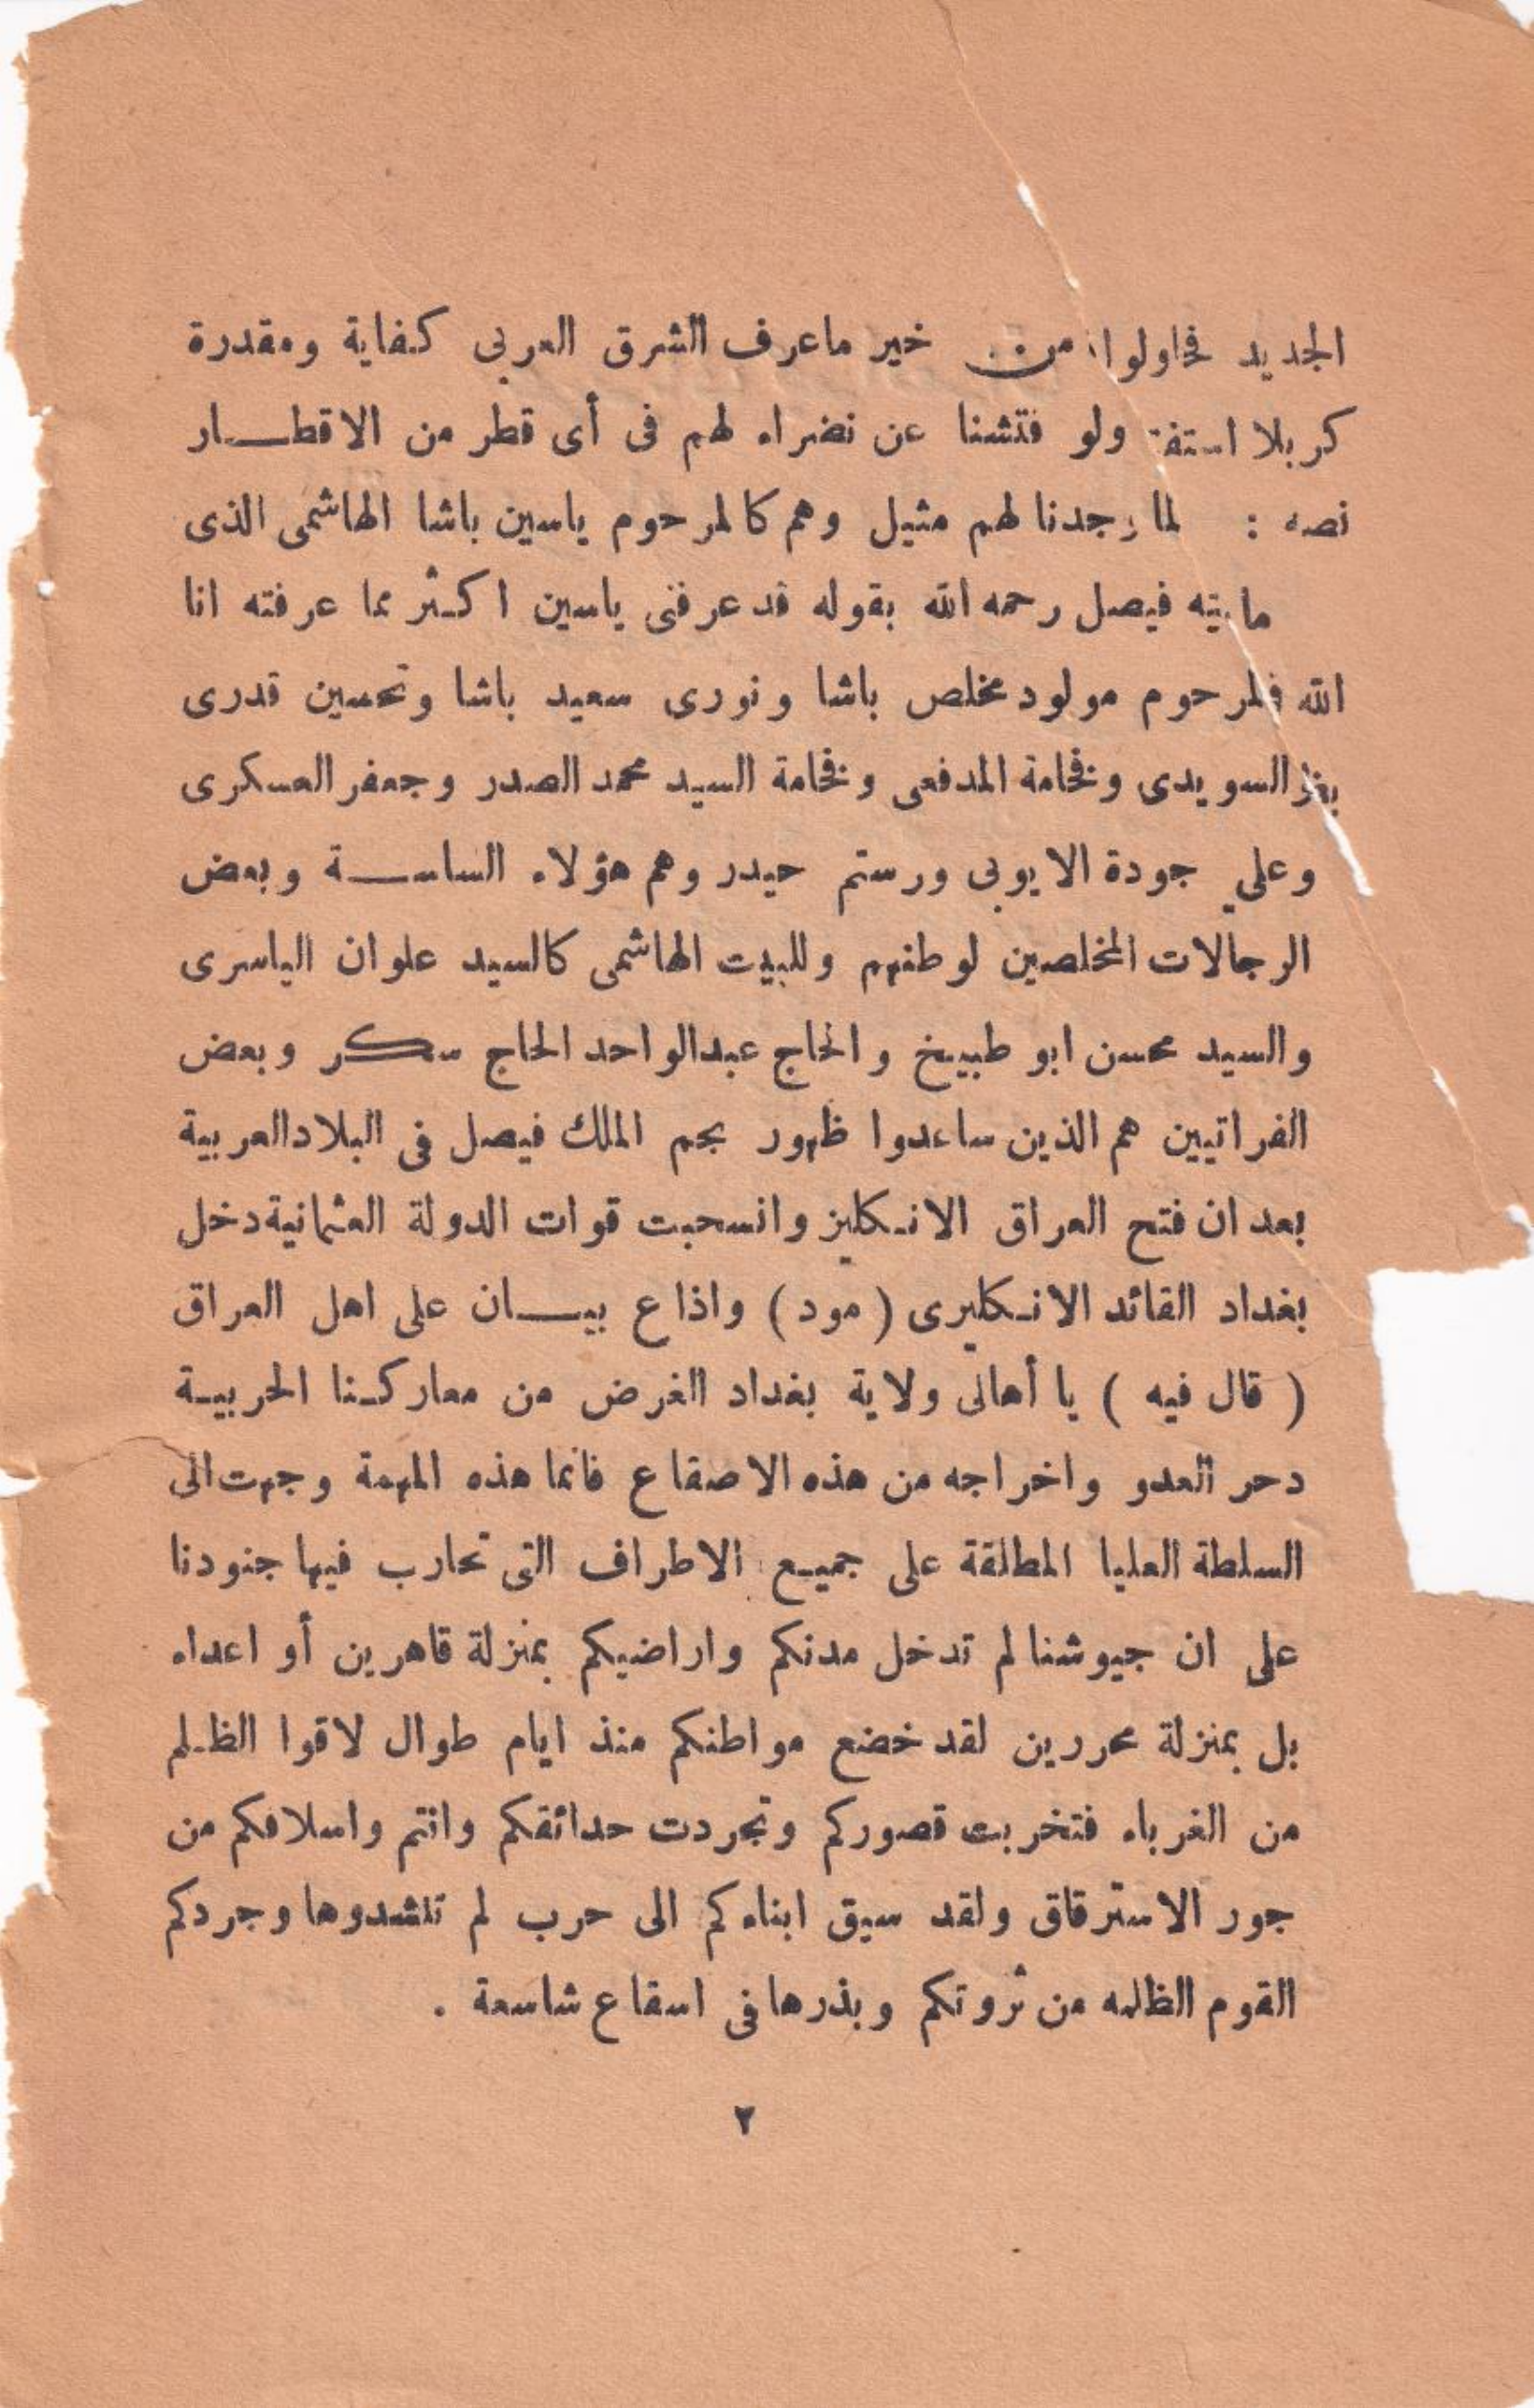 الجديد فحاولوا من خير ماعرف الشرق العربى كفاية ومقدرة
كربلا استفت ولو فتشنا عن نضراء لهم فى أى قطر من الاقطـــار
نصه : لما وجدنا لهم مثيل وهم كالمرحوم ياسين باشا الهاشمى الذى
فيصل رحمه الله بقوله قد عرفنى ياسين اكثر مما عرفته انا
الله فلمرحوم مولود مخلص باشا ونورى سعيد باشا وتحسين قدرى
السويدى وفخامة المدفعى وفخامة السيد محمد الصدر وجعفر العسكرى
وعلي جودة الايوبى ورستم حيدر وهم هؤلاء الساســـة وبعض
الرجالات المخلصين لوطنهم وللبيت الهاشمى كالسيد علوان الياسرى
والسيد محسن ابو طبيخ والحاج عبدالواحد الحاج سكر وبعض
الفراتيين هم الذين ساعدوا ظهور نجم الملك فيصل فى البلاد العربية
بعد ان فتح العراق الانـكليز وانسحبت قوات الدولة العثمانية دخل
بغداد القائد الانـكليرى ( مود ) واذاع بيـــان على اهل العراق
( قال فيه ) يا أهالى ولاية بغداد الغرض من معاركـنا الحربيـة
دحر العدو واخراجه من هذه الاصقاع فانما هذه المهمة وجهت الى
السلطة العليا المطلقة على جميـع الاطراف التى تحارب فيها جنودنا
على ان جيوشنا لم تدخل مدنكم واراضيكم بمنزلة قاهرين أو اعداء
بل بمنزلة محررين لقد خضع مواطنكم منذ ايام طوال لاقوا الظـلم
من الغرباء فتخربت قصوركم وتجردت حدائقكم وانتم واسلافكم من
جور الاسترقاق ولقد سيق ابناءكم الى حرب لم تنشدوها وجردكم
القوم الظلمه من ثروتكم وبذرها فى اسقاع شاسعة .
٢